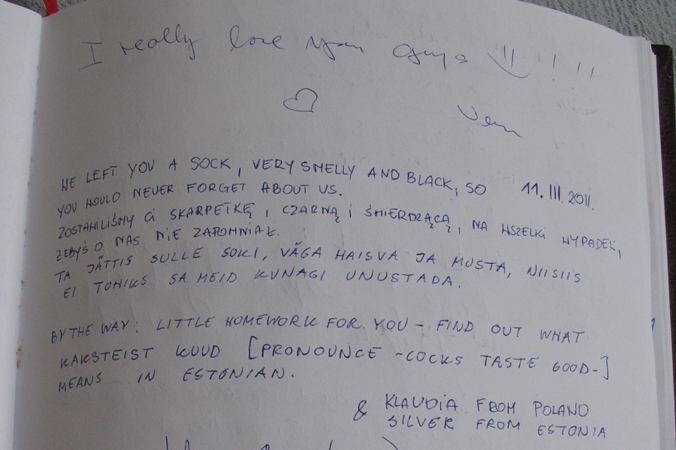 I really love you guys !!!
WE LEFT YOU A SOCK, VERY SMELLY AND BLACK, SO
YOU WOULD NEVER FORGET ABOUT US.
11. III 2011.
ZOSTAWILIŚMY CI SKARPETKĘ, CZARNĄ I ŚMIERDZĄCĄ, NA WSZELKI WYPADEK,
ŻEBYŚ O NAS NIE ZAPOMNIAŁ.
TA JÄTTIS SULLE SOKI, VÄGA HAISVA JA MUSTA, NII SIIS
EI TOHIKS SA MEID KUNAGI UNUSTADA.
BY THE WAY: LITTLE HOMEWORK FOR YOU - FIND OUT WHAT
KAKSTEIST KUUD [PRONOUNCE -COCKS TASTE GOOD-]
MEANS IN ESTONIAN.
& KLAUDIA FROM POLAND
SILVER FROM ESTONIA